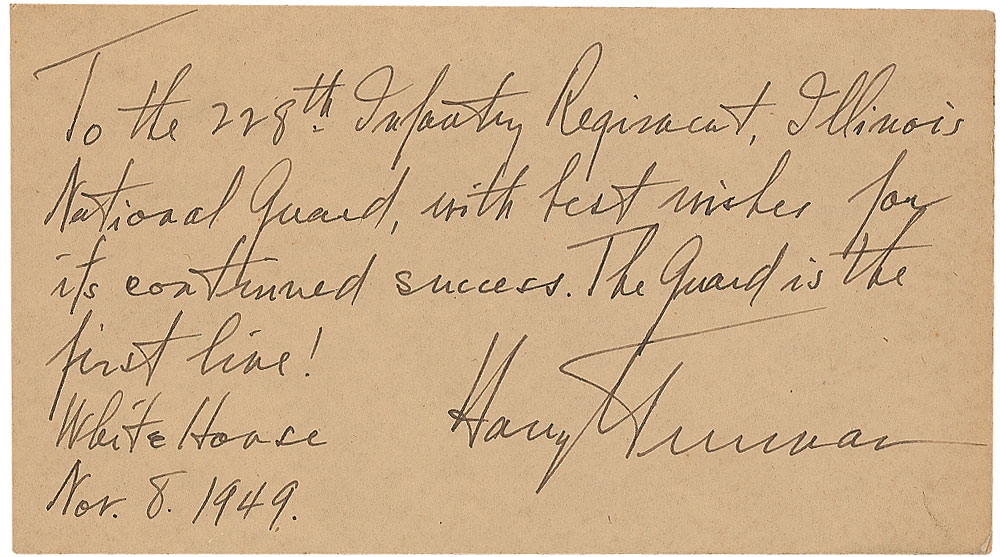 To the 228th. Infantry Regiment, Illinois
National Guard, with best wishes for
its continued success. The Guard is the
first line!
White House
Nov. 8. 1949.
Harry Truman